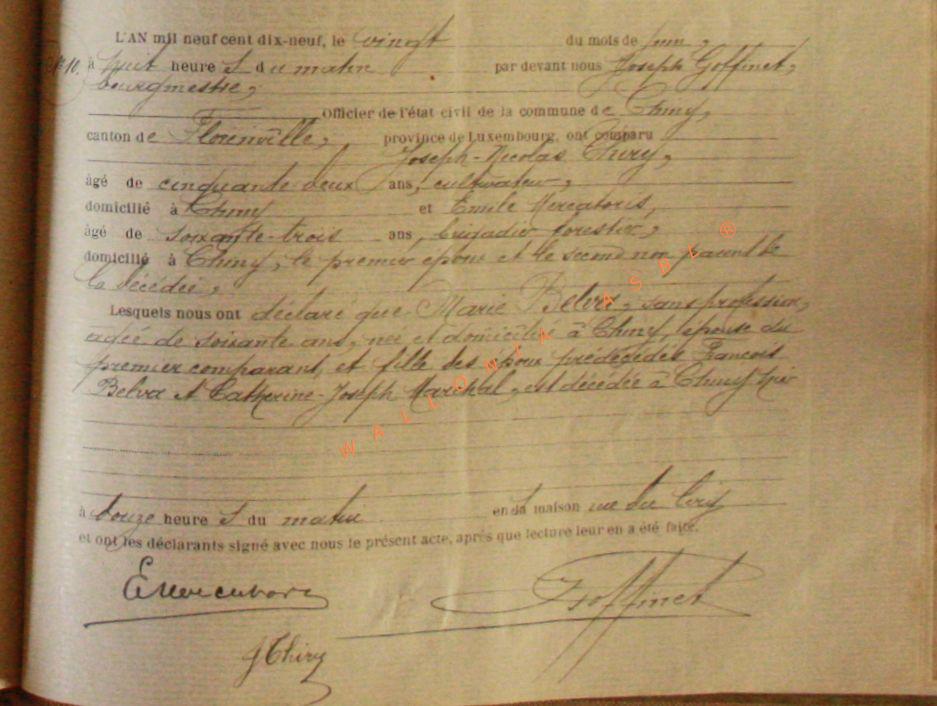 L'AN mil neuf cent dix-neuf, le vingt du mois de juin,
N° 10. à huit heures du matin par devant nous Joseph Goffinet,
bourgmestre,
Officier de l'état civil de la commune de Chiny,
canton de Florenville, province de Luxembourg, ont comparu
Joseph-Nicolas Thiry,
âgé de cinquante-deux ans, cultivateur,
domicilié à Chiny et Emile Mercatoris,
âgé de soixante-trois ans, brigadier forestier,
domicilié à Chiny, le premier époux et le second non parent de
la décédée,
Lesquels nous ont déclaré que Marie Belva, sans profession,
agée de soixante ans, née et domiciliée à Chiny, épouse du
premier comparant, et fille des époux prédécédés François
Belva et Catherine-Joseph Maréchal, est décédée à Chiny hier
à douze heures du matin en sa maison rue du
et ont les déclarants signé avec nous le présent acte, après que lecture leur en a été faite.
EMercatoris JGoffinet
JThiry
WALLONIA ASBL ®